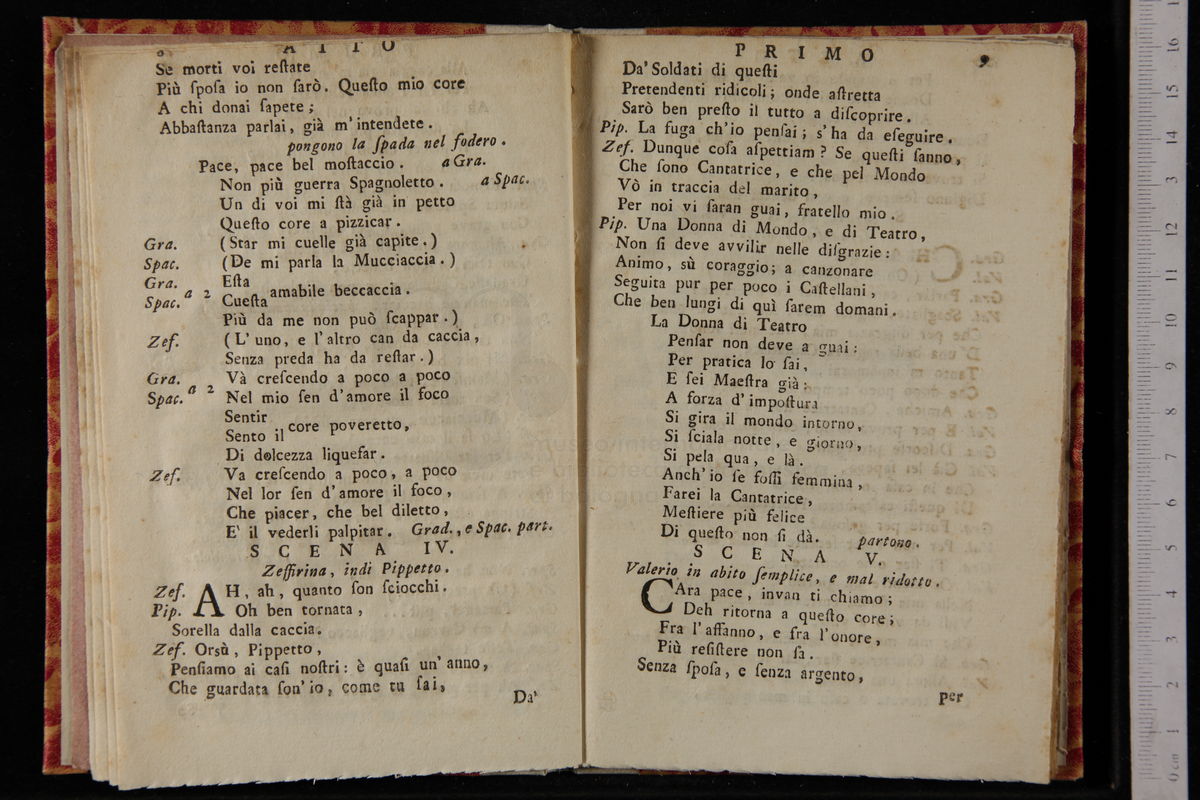 8 ATTO
Se morti voi reſtate
Più ſpoſa io non ſarò. Queſto mio core
A chi donai ſapete;
Abbaſtanza parlai, già m'intendete.
pongono la ſpada nel fodero.
Pace, pace bel moſtaccio. a Gra.
Non più guerra Spagnoletto. a Spac.
Un di voi mi ſtà già in petto
Queſto core a pizzicar.
Gra. (Star mi cuelle già capite.)
Spac. (De mi parla la Mucciaccia.)
Gra. Eſta
Spac. a 2 Cueſta amabile beccaccia.
Più da me non può ſcappar.)
Zef. (L'uno, e l'altro can da caccia,
Senza preda ha da reſtar.)
Gra. Và creſcendo a poco a poco
Spac. a 2 Nel mio ſen d'amore il foco
Sentir
Sento il core poveretto,
Di dolcezza liquefar.
Zef. Va creſcendo a poco, a poco
Nel lor ſen d'amore il foco,
Che piacer, che bel diletto,
E' il vederli palpitar. Grad., e Spac. part.
SCENA IV.
Zeffirina, indi Pippetto.
Zef. AH, ah, quanto ſon ſciocchi.
Pip. Oh ben tornata,
Sorella dalla caccia.
Zef. Orsù, Pippetto,
Penſiamo ai caſi noſtri: è quaſi un'anno,
Che guardata ſon'io, come tu ſai,
Da'
PRIMO 9
Da'Soldati di queſti
Pretendenti ridicoli; onde aſtretta
Sarò ben preſto il tutto a diſcoprire.
Pip. La fuga ch'io penſai; s'ha da eſeguire.
Zef. Dunque coſa aſpettiam? Se queſti ſanno,
Che ſono Cantatrice, e che pel Mondo
Vò in traccia del marito,
Per noi vi ſaran guai, fratello mio.
Pip. Una Donna di Mondo, e di Teatro,
Non ſi deve avvilir nelle diſgrazie:
Animo, sù coraggio; a canzonare
Seguita pur per poco i Caſtellani,
Che ben lungi di quì ſarem domani.
La Donna di Teatro
Penſar non deve a guai:
Per pratica lo ſai,
E ſei Maeſtra già:
A forza d'impoſtura
Si gira il mondo intorno,
Si ſciala notte, e giorno,
Si pela qua, e là.
Anch'io ſe foſſi femmina,
Farei la Cantatrice,
Meſtiere più felice
Di queſto non ſi dà. partono.
SCENA V.
Valerio in abito ſemplice, e mal ridotto.
CAra pace, invan ti chiamo;
Deh ritorna a queſto core;
Fra l'affanno, e fra l'onore,
Più reſiſtere non ſa.
Senza ſpoſa, e ſenza argento,
Per